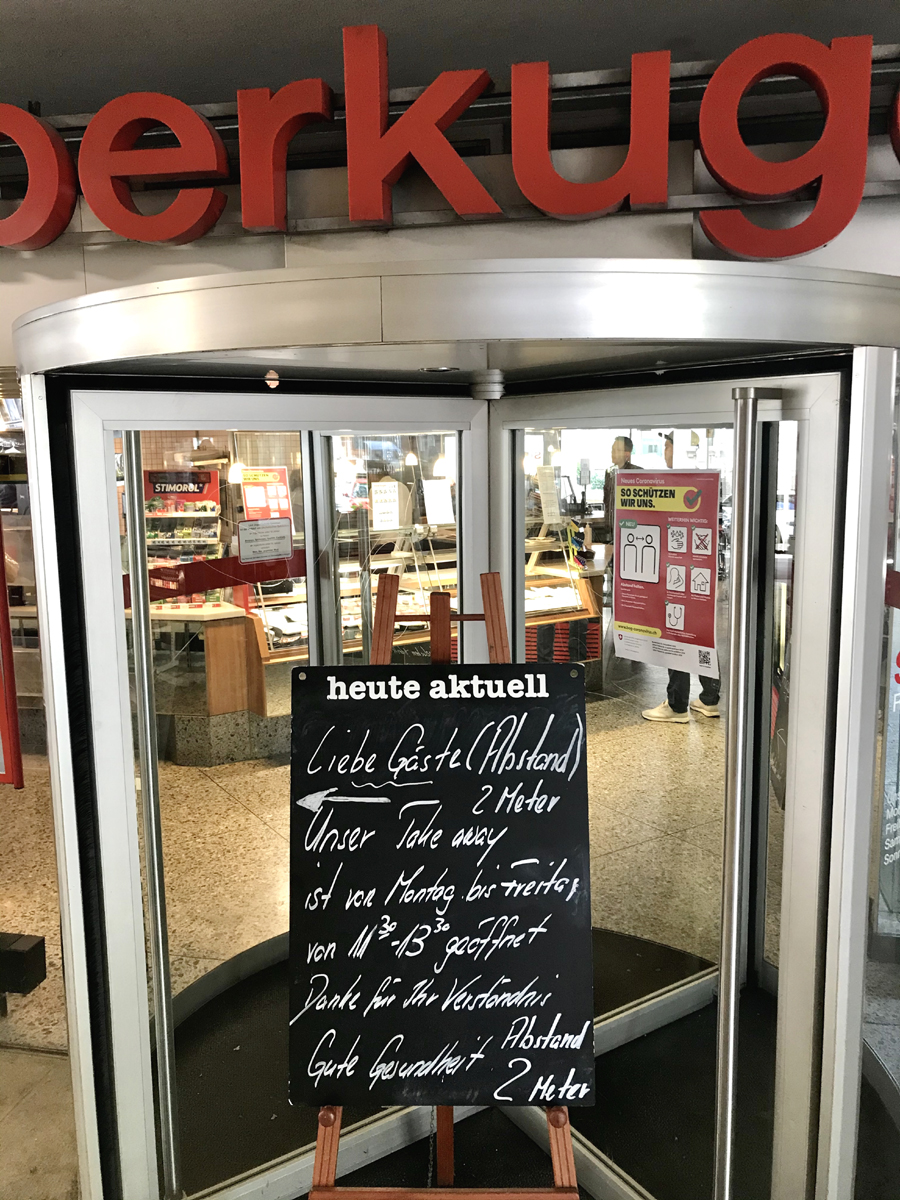 berkug
STIMOROL
Neues Coronavirus
SO SCHÜTZEN
WIR UNS.
NEU
WEITERHIN WICHTIG:
Abstand halten.
heute aktuell
Liebe Gäste (Abstand)
2 Meter
Unser Take away
ist von Montag bis Freitag
von 11³⁰-13³⁰ geöffnet
Danke für Ihr Verständnis
Gute Gesundheit Abstand
2 Meter